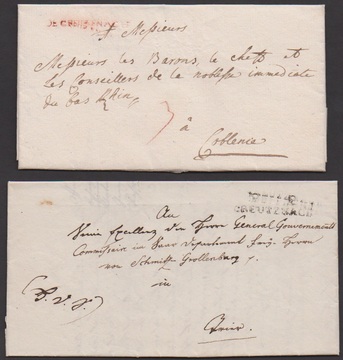 DE CREUTZNACH
à Messieurs
Messieurs les Barons, le chef et
les Conseillers de la noblesse immediate
du bas Rhin
3
à
Coblence
CREUTZNACH
An
Seine Excellenz den Herrn General Gouvernements
Commissair im Saar Departement Herrn
von Schmitz Grollenburg
in
Trier.